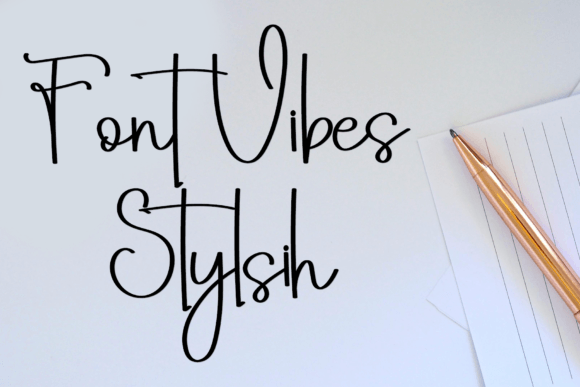 Font Vibes
Stylsih